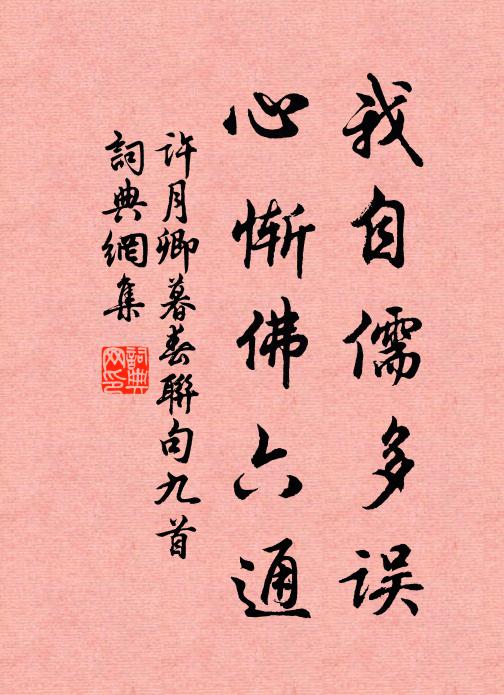 我自儒多误
心惭佛六通
许月卿暮春聯句九首
詞典網集
詞典网印